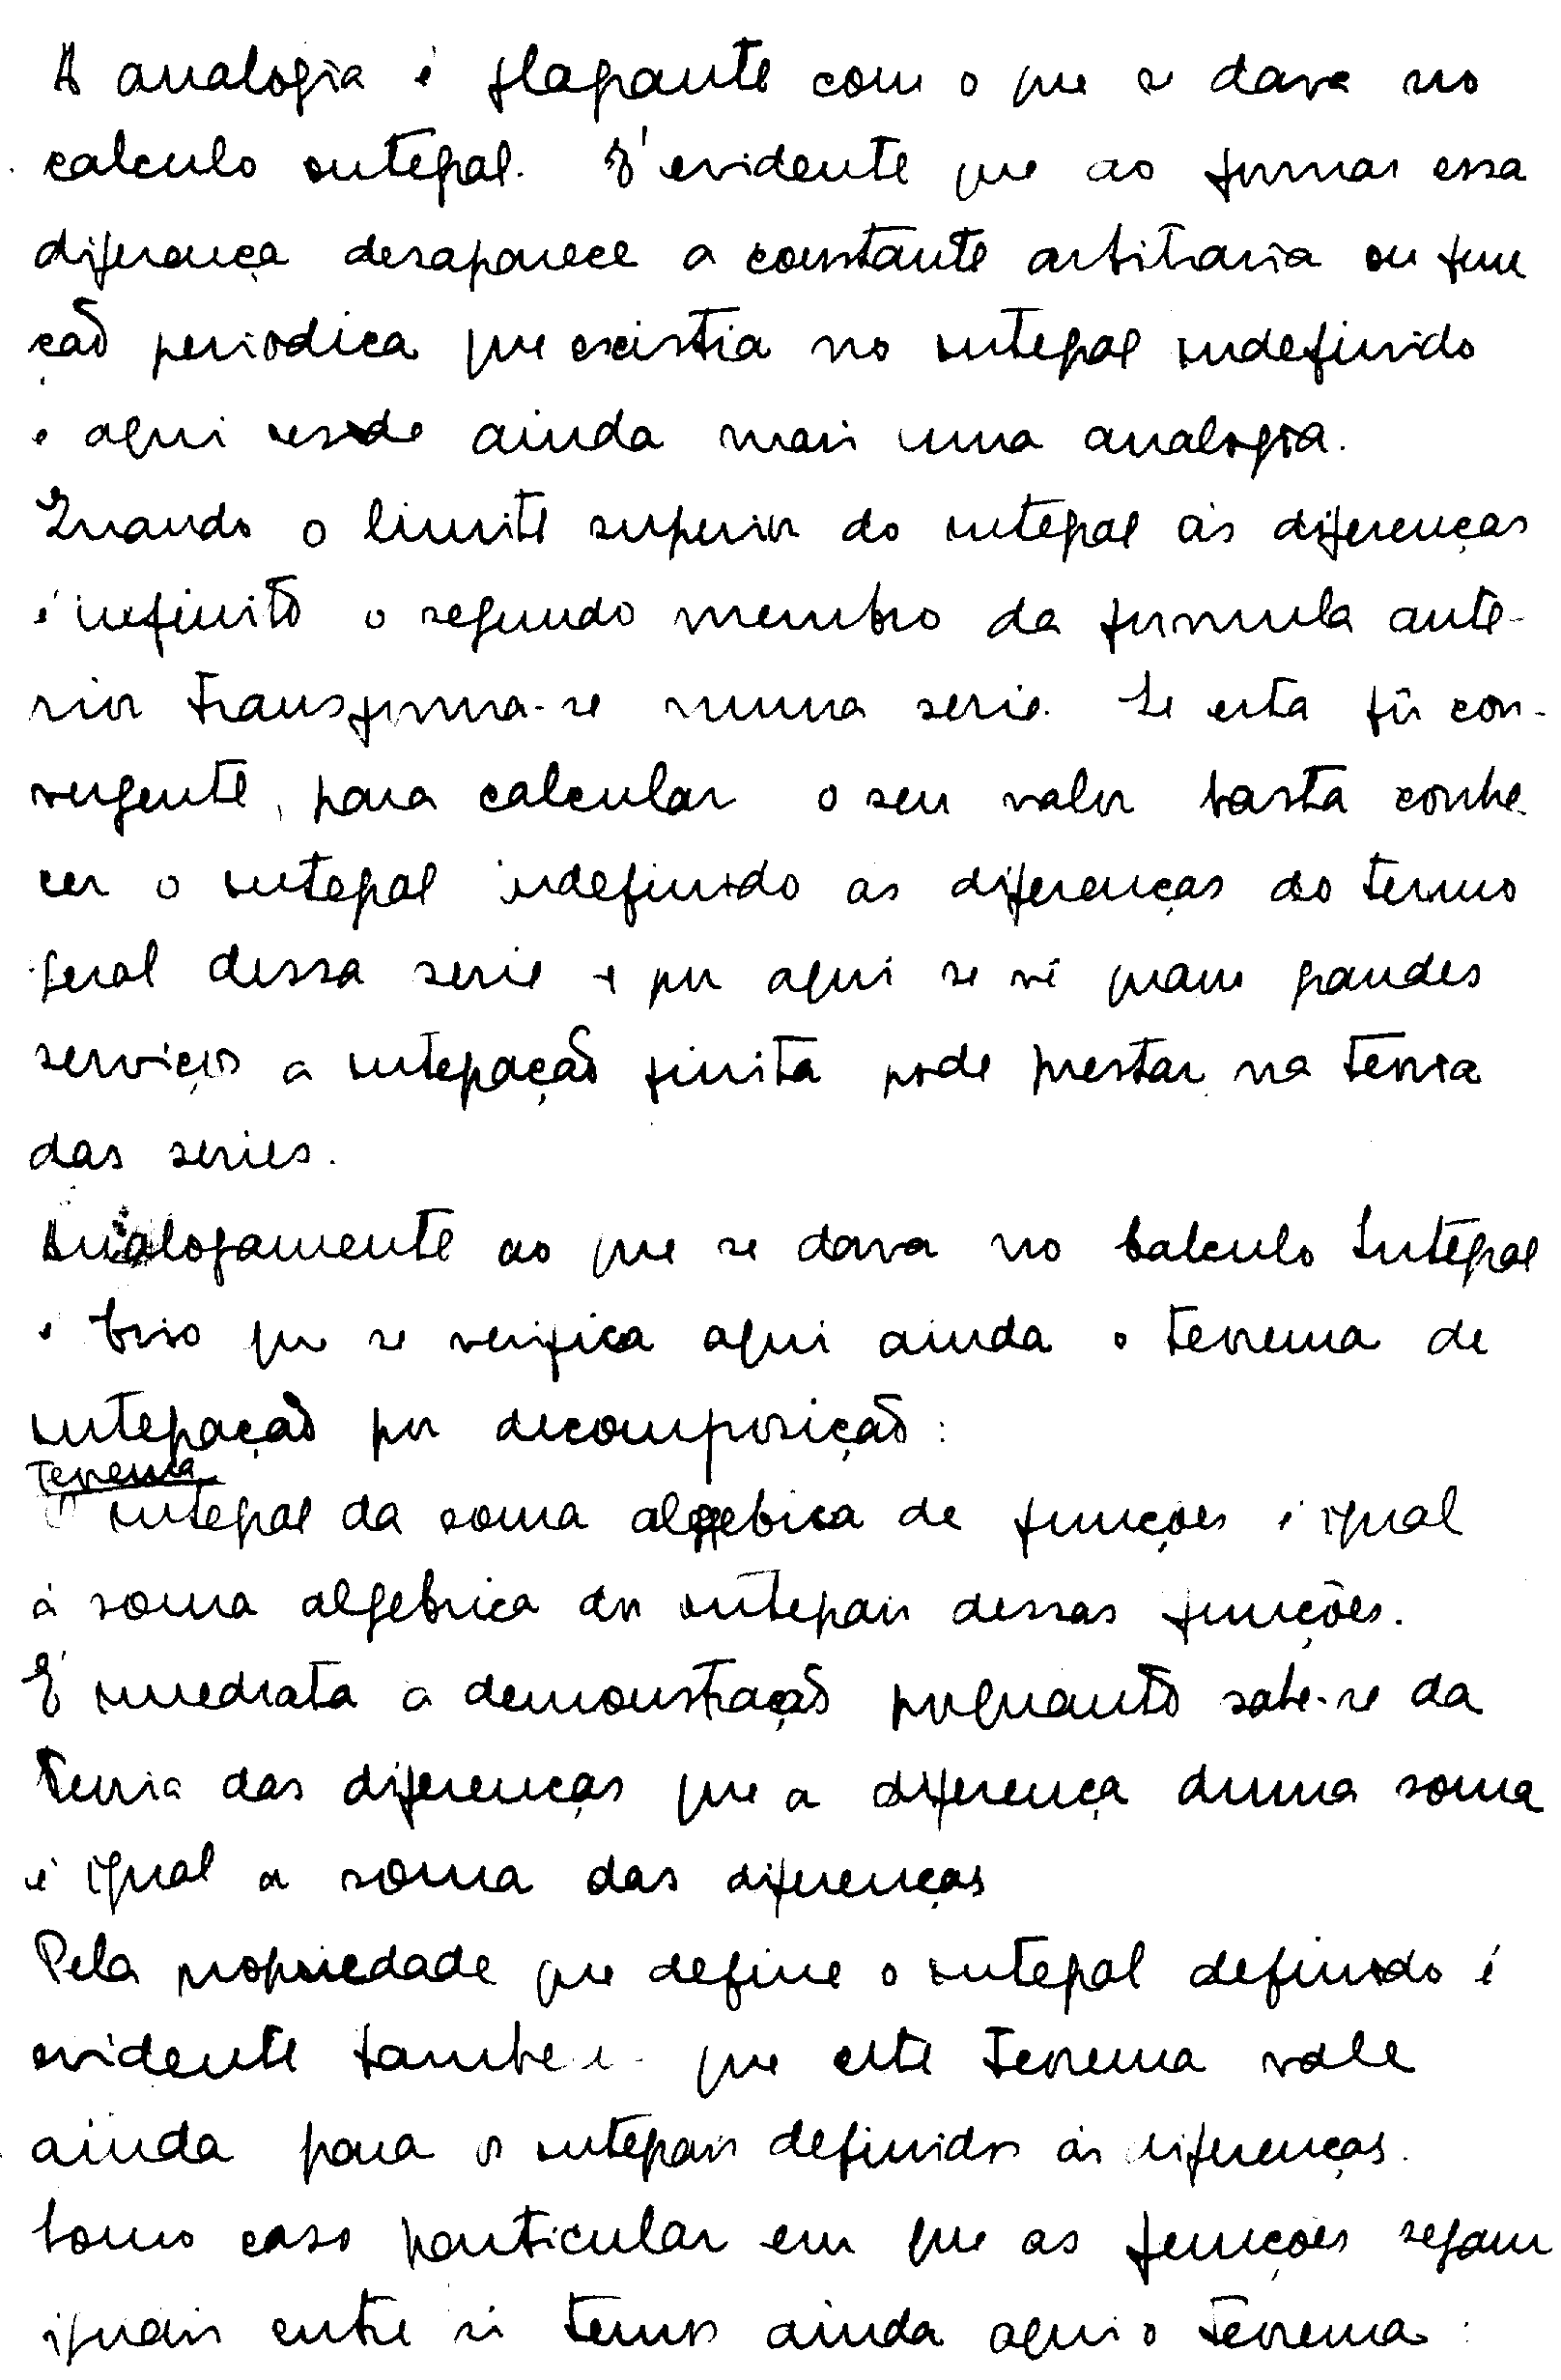 A analogia é flagrante com o que se dava no
calculo integral. E' evidente que ao formar essa
diferença desaparece a constante arbitraria ou fun
ção periodica que existia no integral indefinido
e aqui reside ainda mais uma analogia.
Quando o limite superior do integral ás diferenças
é infinito o segundo membro da formula ante-
rior transforma-se numa serie. Se esta fôr con-
vergente, para calcular o seu valor basta conhe
cer o integral indefinido as diferenças do termo
geral dessa serie e por aqui se vê quam grandes
serviços a integração finita pode prestar na teoria
das series.
Analogamente ao que se dava no Calculo Integral
é que se verifica aqui ainda o teorema de
integração por decomposição:
Teorema
O integral da soma algebrica de funções é igual
á soma algebrica dos integrais dessas funções.
E' imediata a demonstração porquanto sabe-se da
teoria das diferenças que a diferença duma soma
é igual a soma das diferenças
Pela propriedade que define o integral definido é
evidente tambem que este teorema vale
ainda para os integrais definidos ás diferenças.
Como caso particular em que as funções sejam
iguais entre si temos ainda aqui o teorema: